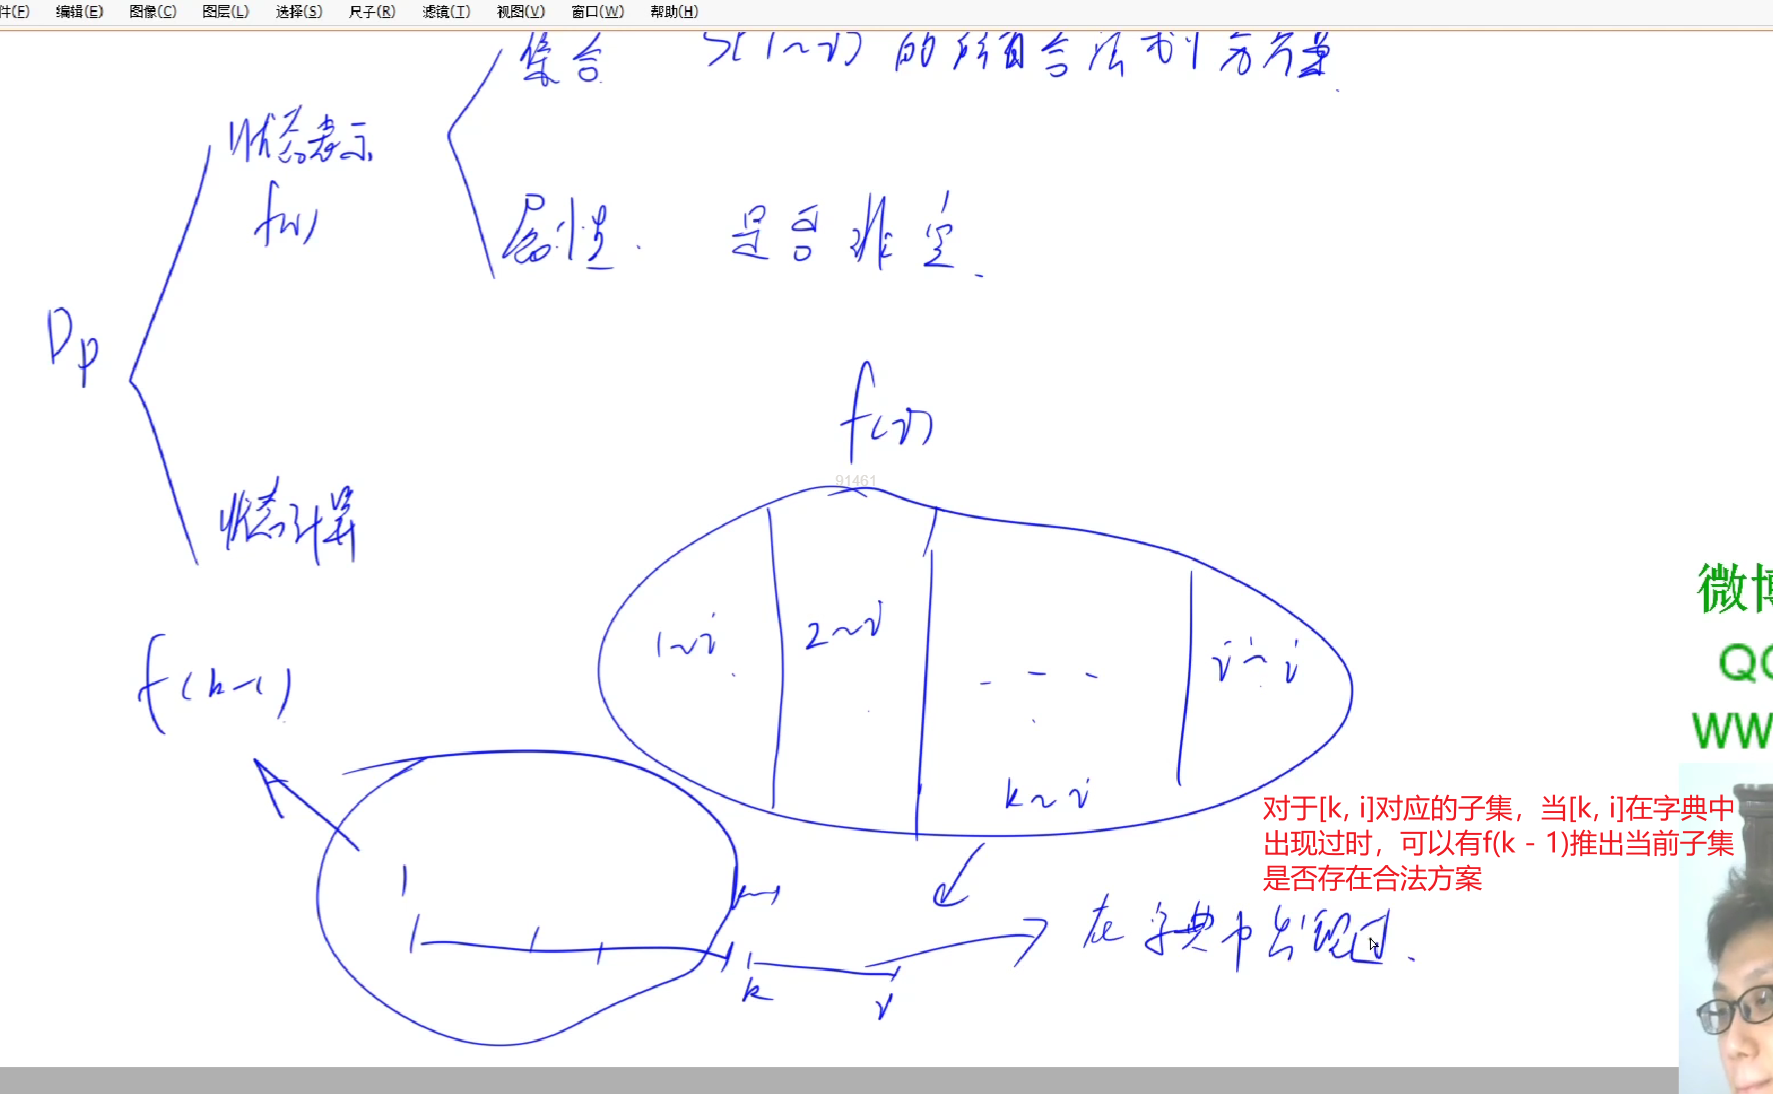 件(F) 编辑(E) 图像(C) 图层(L) 选择(S) 尺子(R) 滤镜(T) 视图(V) 窗口(W) 帮助(H)
集合 S(1~i) 的所有合法划分方案.
状态表示
f(i)
属性. 是否非空.
Dp
f(i)
91461
状态计算
1~i 2~i - - - i~i
f(k-1)
k~i
对于[k, i]对应的子集，当[k, i]在字典中
出现过时，可以有f(k - 1)推出当前子集
是否存在合法方案
1 k-1
在字典中出现过.
k i
微博
QQ
WW